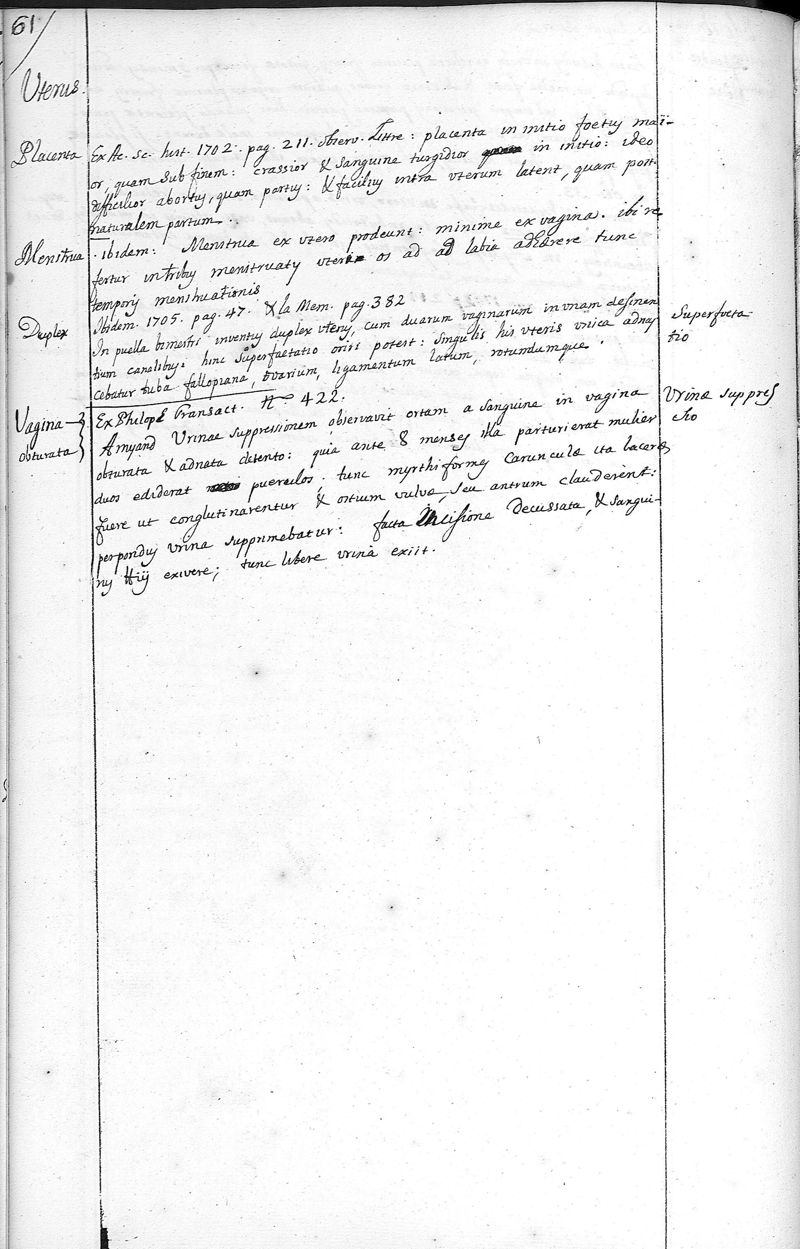 61
Uterus
Placenta
Ex Ac. Sc. hist. 1702. pag. 211. observ. Littre: placenta in initio foetus maï-
or, quam sub finem: crassior & sanguine turgidior in initio: ideo
difficilior abortus, quam partus: & facilius intra uterum latent, quam post
naturalem partum.
Menstrua
. ibidem: Menstrua ex utero prodeunt: minime ex vagina. ibi re
fertur in tribus menstruatis os ad ad labia adhærere tunc
temporis menstruationis
Duplex
Ibidem. 1705. pag. 47. & la Mem. pag. 382
In puella bimestri inventus duplex uterus, cum duarum vaginarum in unam desinen
tium canalibus: hinc superfaetatio oriri potest: singulis his uteris unica adnas
cebatur tuba fallopiana, ovarium, ligamentum latum, rotundumque.
Superfoeta
tio
Vagina
obturata
Ex Philops Transact. No 422.
Amyand Urinae suppressionem observavit ortam a sanguine in vagina
obturata & adnata detento: quia ante 8 menses illa parturierat mulier
duos ediderat puerulos. tunc myrthiformes carunculæ ita laceræ
fuere ut conglutinarentur & ostium vulvæ, seu antrum clauderent:
perpondus urina supprimebatur: facta incisione decussata, & sangui-
nis exivere; tunc libere urina exiit.
Urinæ suppres
sio